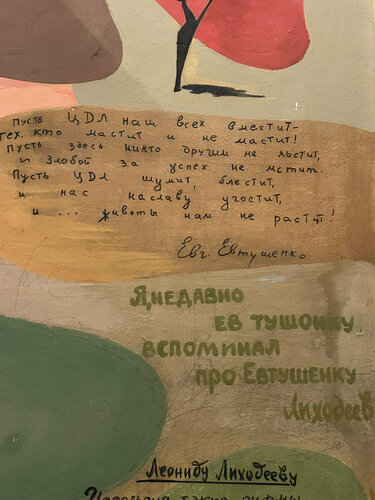 Пусть ЦДЛ наш всех вместит–
тех, кто мастит и не мастит!
Пусть здесь никто другим не льстит,
и злобой за успех не мстит.
Пусть ЦДЛ шумит, блестит,
и нас наславу угостит,
и ... животы нам не растит!
Евг. Евтушенко
Я,недавно
ев тушонку
вспоминал
про Евтушенку
Лиходеев
Леониду Лиходееву
такие рифмы